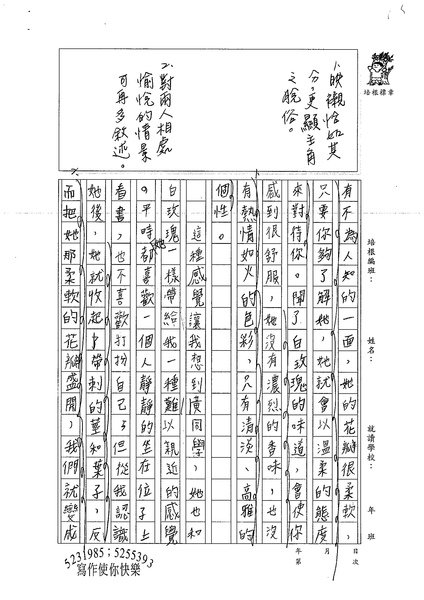 培根標章
1、映襯恰如其
分,更顯主角
之脫俗。
2、對兩人相處
愉悅的情景
可再多敘述。
培根編班:
姓名:
就讀學校:
年 班
第
年
月
日
次
有不為人知的一面,她的花瓣很柔軟,
只要你夠了解她,她就會以溫柔的態度
來對待你。聞了白玫瑰的味道,會使你
感到很舒服,她沒有濃烈的香味,也沒
有熱情如火的色彩,只有清淡、高雅的
個性。
這種感覺讓我想到黃同學,她也和
白玫瑰一樣帶給我一種難以親近的感覺
。平時她都喜歡一個人靜靜的坐在位子上
看書,也不喜歡打扮自己,但從我認識
她後,她就收起了帶刺的莖和葉子,反
而把她那柔軟的花瓣盛開,我們就變成
5231985;5255393
寫作使你快樂